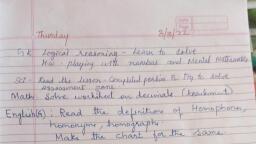 Thursday
Logical Reasoning - Learn to solve
playing with number and Mental Mathematics
Read the lesson - Completed portion & Try to solve
assessment
Math: Solve worksheet on decimals (
English(G): Read the definition of Homophones,
homonyms, homographs.
Make the chart for the same